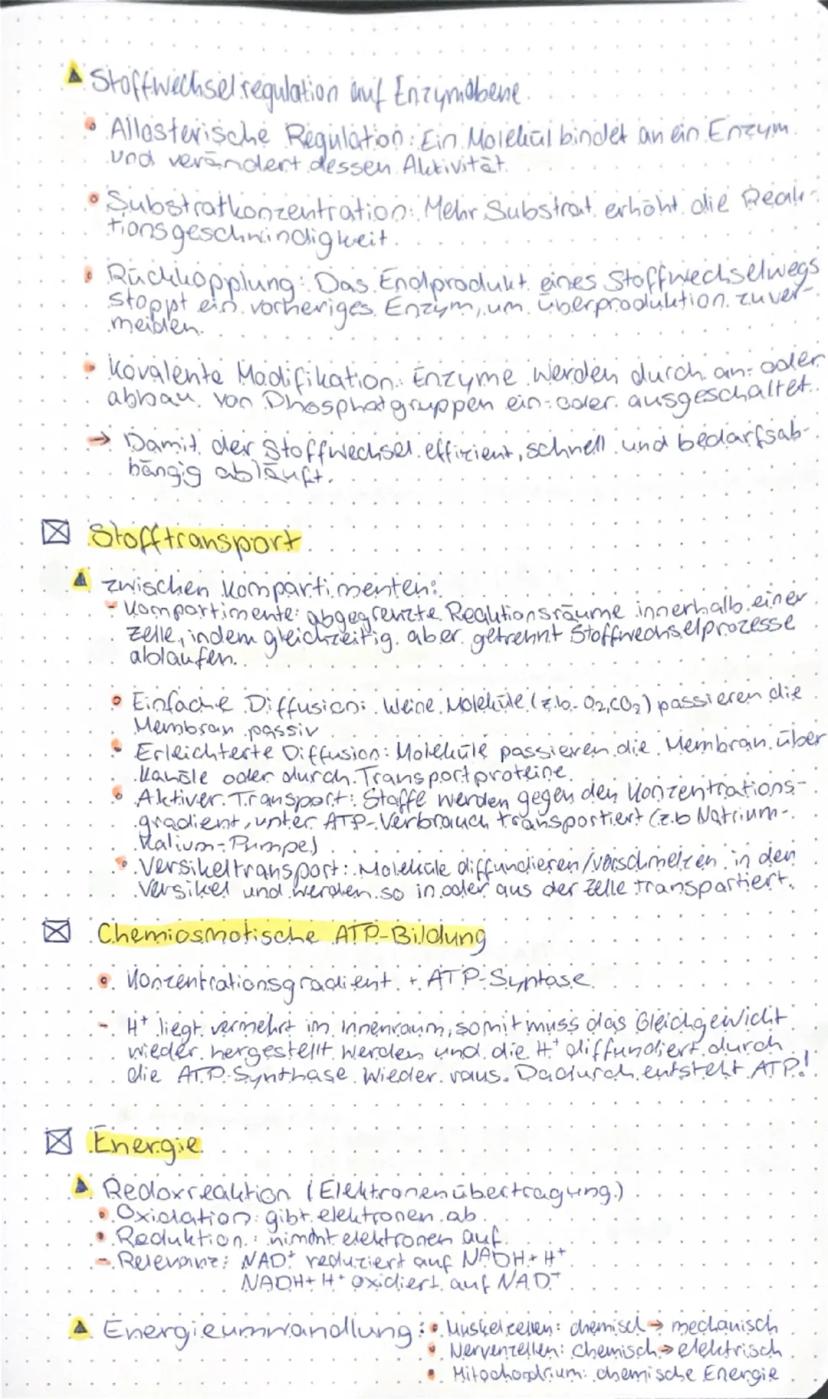 Stoffwechselregulation auf Enzymebene
Allosterische Regulation: Ein Molekül bindet an ein Enzym
und verändert dessen Aktivität
Substratkonzentration: Mehr Substrat erhöht die Reak-
tionsgeschwindigkeit.
Rückkopplung: Das Endprodukt eines Stoffwechselwegs
stoppt ein vorheriges Enzym, um überproduktion zu ver-
meiden.
Kovalente Modifikation: Enzyme werden durch an- oder
abbau von Phosphatgruppen ein- oder ausgeschaltet.
→ Damit der Stoffwechsel effizient, schnell und bedarfsab-
hängig abläuft.
Stofftransport
zwischen Kompartimenten:
- Kompartimente: abgegrenzte Reaktionsräume innerhalb einer
Zelle, indem gleichzeitig aber getrennt Stoffwechselprozesse
ablaufen.
Einfache Diffusion: kleine Moleküle (z.b. O2, CO2) passieren die
Membran passiv
Erleichterte Diffusion: Moleküle passieren die Membran über
Kanäle oder durch Transportproteine.
Aktiver Transport: Stoffe werden gegen den Konzentrations-
gradient, unter ATP-Verbrauch transportiert (z.b Natrium-
Kalium-Pumpe)
Versikeltransport: Moleküle diffundieren/verschmelzen in den
Versikel und werden so in oder aus der Zelle transpartiert.
Chemiosmotische ATP-Bildung
Konzentrationsgradient + ATP-Syptase
- H+ liegt vermehrt im Innenraum, somit muss das Gleichgewicht
wieder hergestellt werden und die H+ diffundiert durch
die ATP-Synthase wieder raus. Dadurch entsteht ATP!
Energie
Redoxreaktion (Elektronenübertragung)
Oxidation: gibt elektronen ab
Reduktion: nimmt elektronen auf
- Relevanz: NAD+ reduziert auf NADH + H+
NADH + H+ oxidiert auf NAD+
Energieumwandlung: Muskelzellen: chemisch → mechanisch
Nervenzellen: chemisch → elektrisch
Mitochondrium: chemische Energie